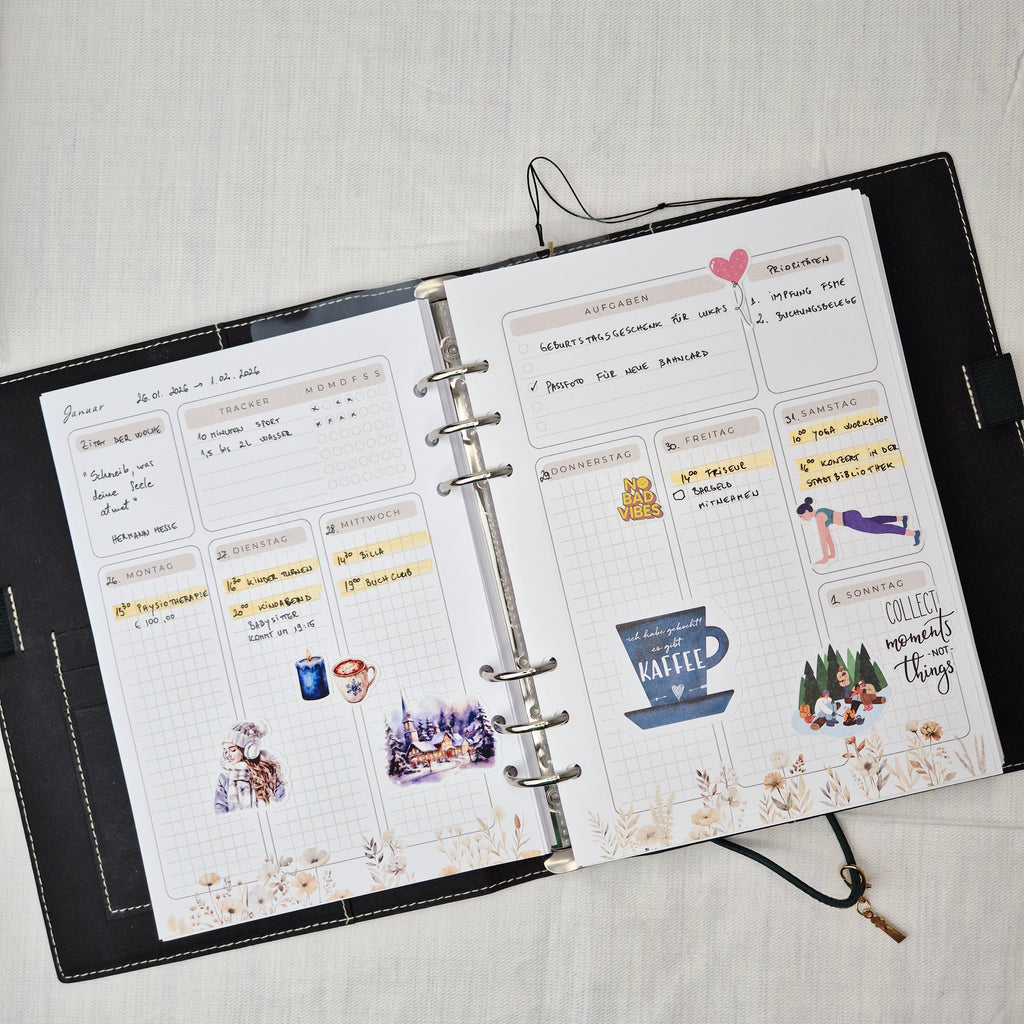 Januar
26.01. 2026 → 1.02. 2026
ZITAT DER WOCHE
"Schreib, was
deine Seele
atmet"
HERMANN HESSE
TRACKER
M D M D F S S
10 MINUTEN SPORT
x x x
1,5 bis 2L WASSER
x x x x
26. MONTAG
15³⁰ PHYSIOTHERAPIE
€ 100,00
27. DIENSTAG
16³⁰ KINDER TURNEN
20⁰⁰ KINOABEND
BABYSITTER
KOMMT UM 19:15
28. MITTWOCH
14³⁰ BILLA
19⁰⁰ BUCHCLUB
AUFGABEN
GEBURTSTAGSGESCHENK FÜR LUKAS
✓ PASSFOTO FÜR NEUE BAHNCARD
PRIORITÄTEN
1. IMPFUNG FSME
2. BUCHUNGSBELEGE
29. DONNERSTAG
NO
BAD
VIBES
ich habe gekocht!
es gibt
KAFFEE
30. FREITAG
14⁰⁰ FRISEUR
BARGELD
MITNEHMEN
31. SAMSTAG
10⁰⁰ YOGA WORKSHOP
16⁰⁰ KONZERT IN DER
STADTBIBLIOTHEK
1 SONNTAG
COLLECT
moments
-NOT-
things